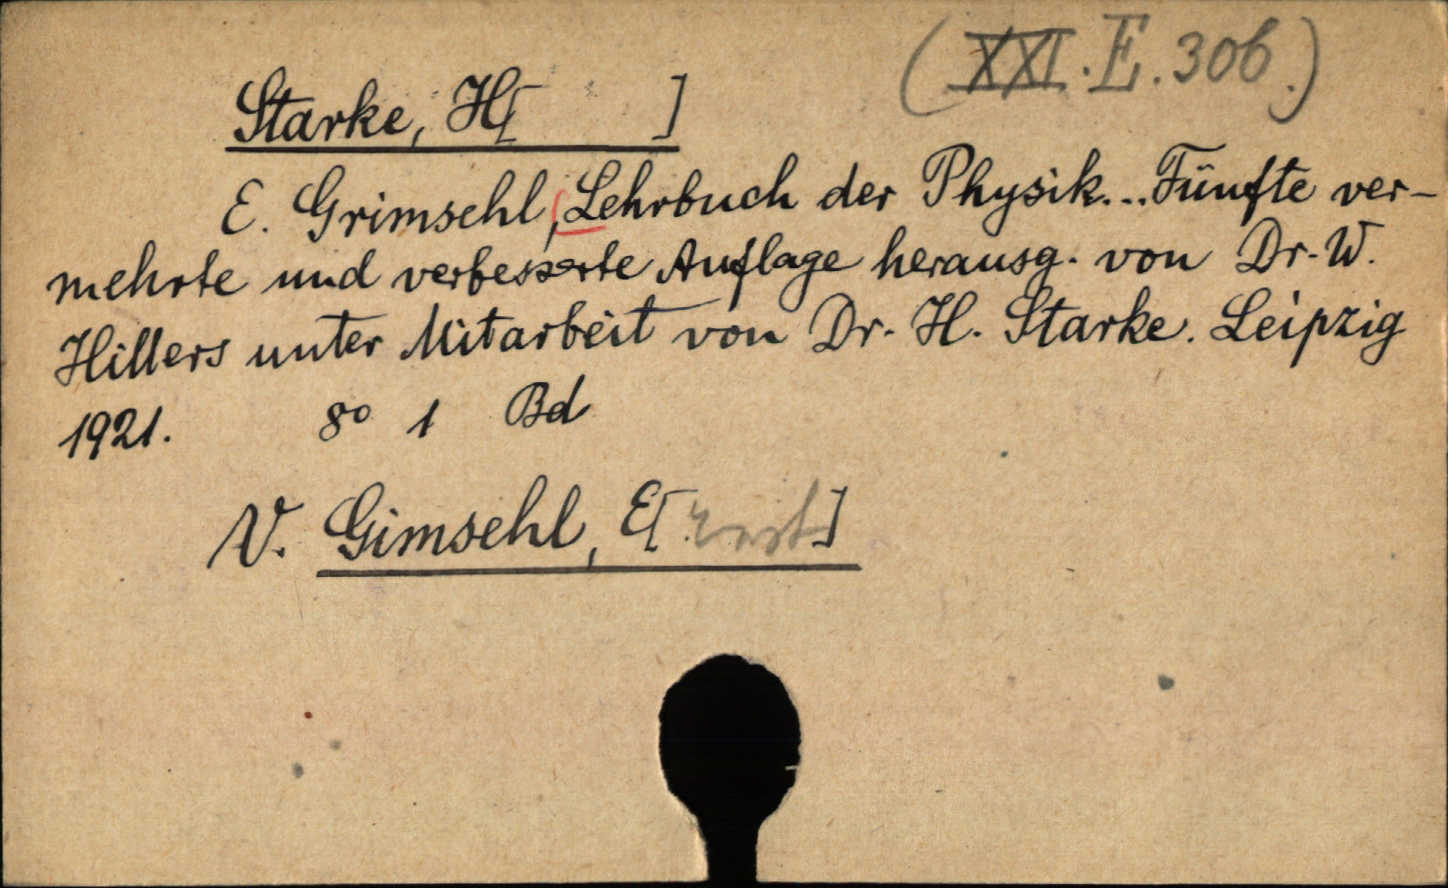 (XXI.E.306.)
Starke, H[ ]
E. Grimsehl, Lehrbuch der Physik... Fünfte ver-
mehrte und verbesserte Auflage herausg. von Dr. W.
Hillers unter Mitarbeit von Dr. H. Starke. Leipzig
1921. 8º 1 Bd
V. Gimsehl, E[rnst]